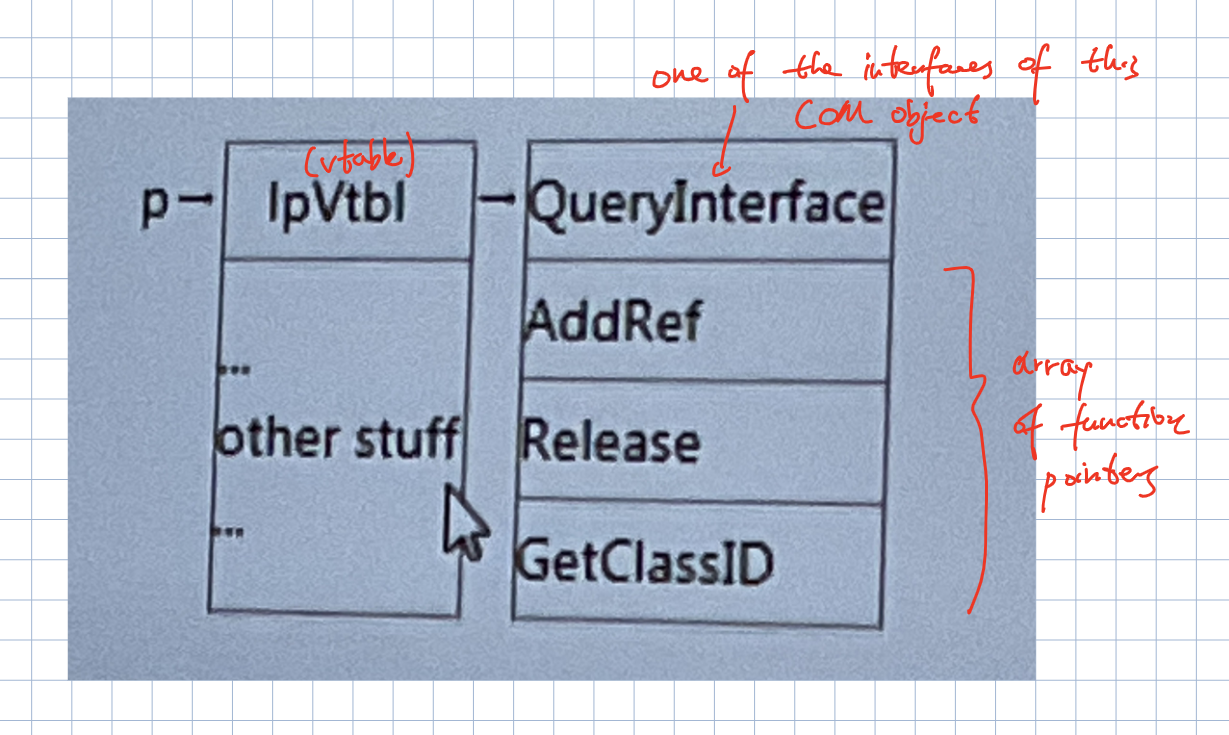 one of the interfaces of this
COM object
(vtable)
p
lpVtbl
QueryInterface
AddRef
...
other stuff
...
Release
GetClassID
array
of function
pointers